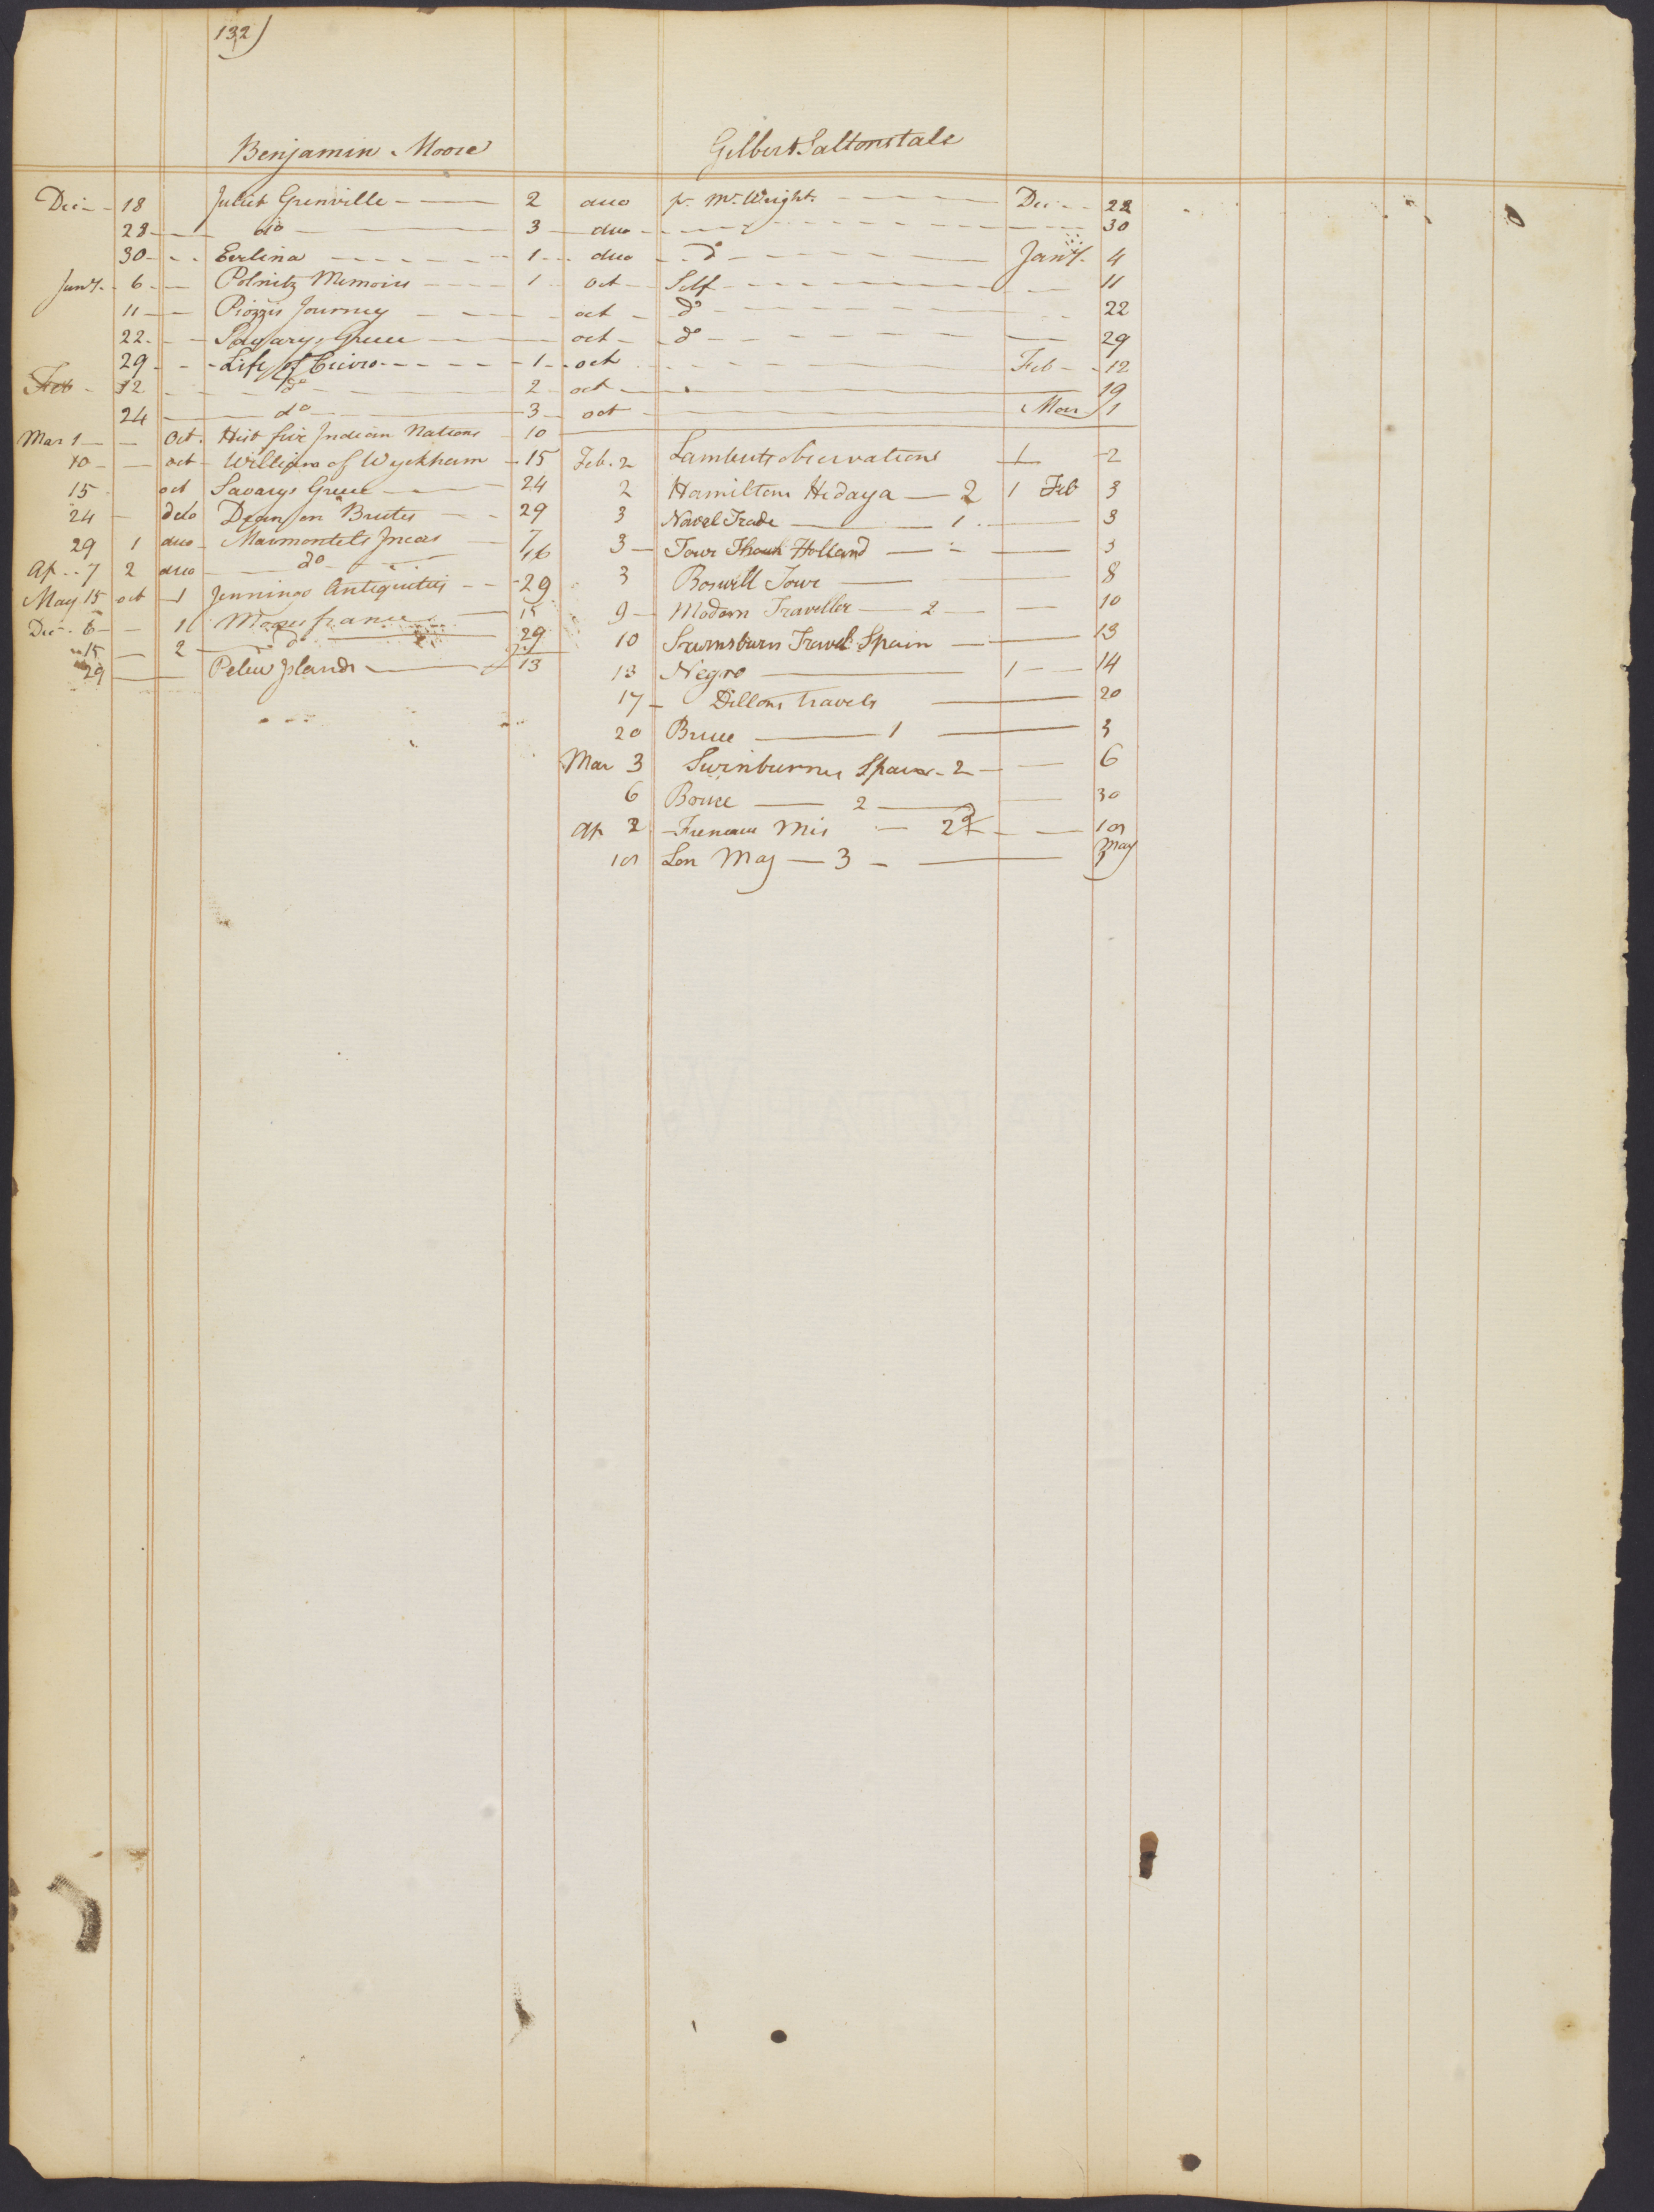 132)
Benjamin Moore
Gilbert Saltonstale
Dec 18 Juliet Grenville 2 duo pr. Mr. Wright Dec 22
28 do 3 duo 30
30 Evelina 1 duo do Jany. 4
Jany. 6 Polnitz Memoirs 1 oct Self 11
11 Piozzis Journey oct do 22
22 Savarys Greece oct do 29
29 Life of Cicero 1 oct Feb 12
Feb 12 do 2 oct 19
24 do 3 oct Mar 1
Mar 1 Oct. Hist five Indian Nations 10
10 oct William of Wyckham 15
15 oct Savarys Greece 24
24 Dean on Brutes 29
29 1 duo Marmontels Incas 7
Ap 7 2 duo do 16
May 15 oct 1 Jennings Antiquities 29
Dec. 6 1 15
15 2 do 29
29 Pelew Islands 13
Feb. 2 Lamberts observations 1 2
2 Hamiltons Hedaya 2 1 Feb 3
3 Novel Trade 1 3
3 Tour Holland 3
3 Boswell Towr 8
9 Modern Traveller 2 10
10 Travel Spain 13
13 Negro 1 14
17 Dillons travels 20
20 Bruce 1 3
Mar 3 Swinburnes 2 6
6 2 30
Ap 2 Freneau Mis 10
10 Lon Mag 3 May